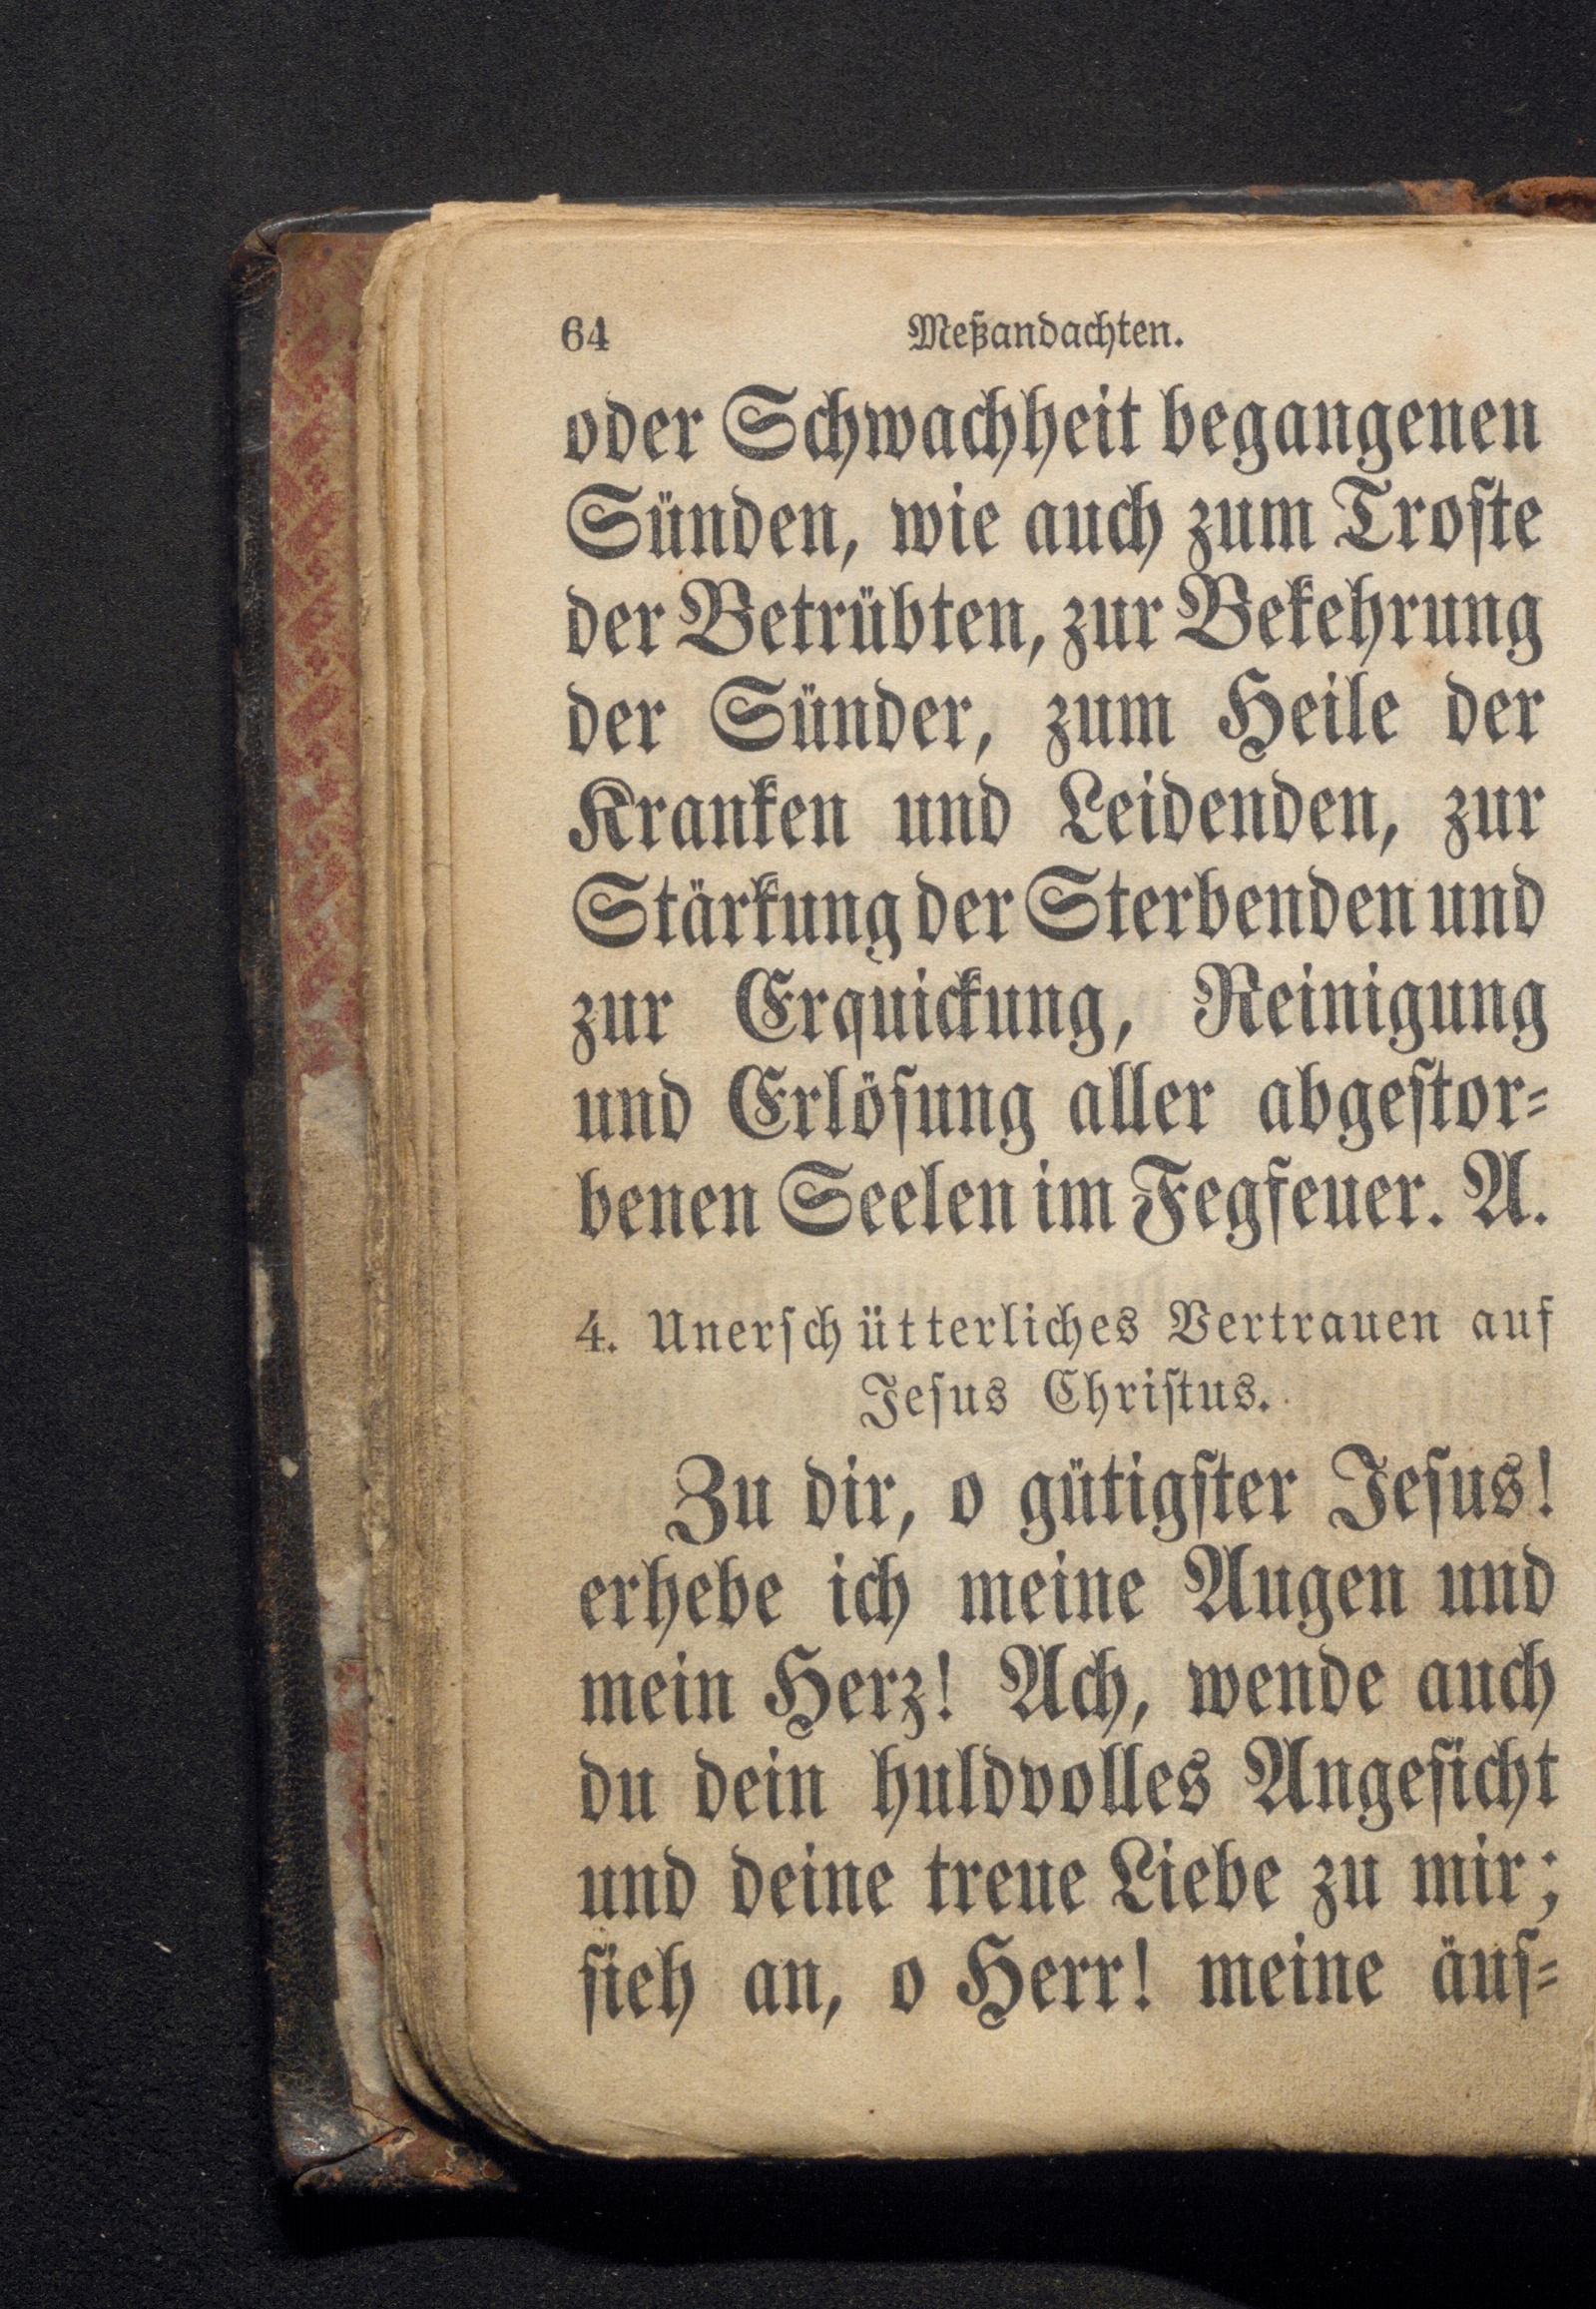 64 Meßandachten.
oder Schwachheit begangenen
Sünden, wie auch zum Troſte
der Betrübten, zur Bekehrung
der Sünder, zum Heile der
Kranken und Leidenden, zur
Stärkung der Sterbenden und
zur Erquickung, Reinigung
und Erlöſung aller abgeſtor⸗
benen Seelen im Fegfeuer. A.
4. Unerſchütterliches Vertrauen auf
Jeſus Chriſtus.
Zu dir, o gütigſter Jeſus!
erhebe ich meine Augen und
mein Herz! Ach, wende auch
du dein huldvolles Angeſicht
und deine treue Liebe zu mir;
ſieh an, o Herr! meine äuſ⸗